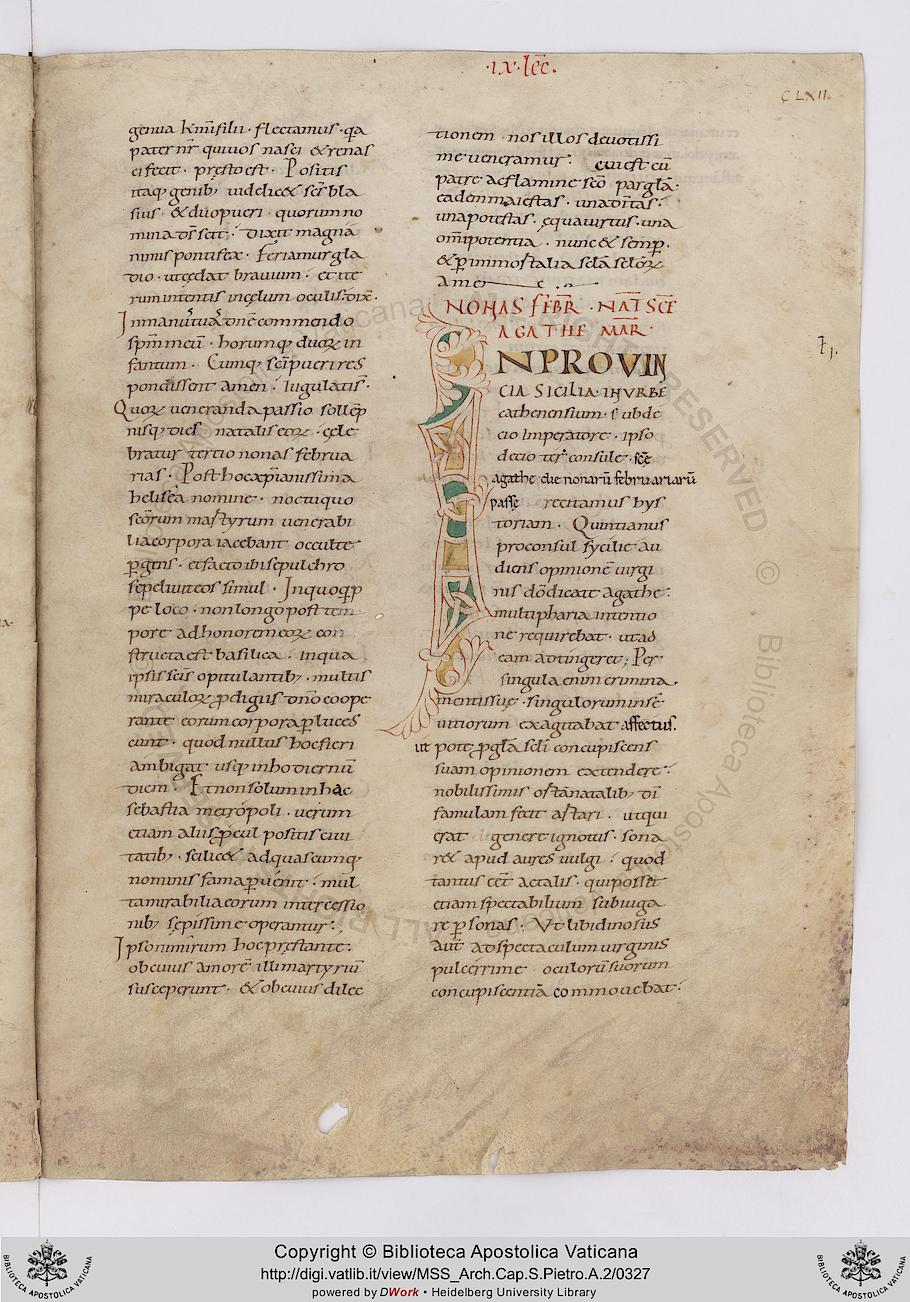 ·ix·lec̄·
C LXII.
genua km̄i filii · flectamus · q̄a
pater nr̄ qui vos nasci & renas
ci fecit · pręsto est · Positis
itaq; genib; videlic& sc̄s bla
sius · & duo pueri · quorum no
mina d̄s scit · dixit magna
nimis pontifex · Feriamur gla
dio · ut ex̄dat bravium · et ite
rum intentis in cęlum oculis · dix̄ ·
In manu tua dn̄e commendo
spm̄ meū · horumq; duoꝝ in
fantum · Cumq; sc̄i pueri res
pondissent amen · iugulati s̄ ·
Quoꝝ veneranda passio sollēp
nisq; dies natalis eoꝝ · cęle
bratur tertio nonas februa
rias · Post hoc xp̄ianissima
helisea nomine · noctu quo
sc̄orum martyrum venerabi
lia corpora iacebant occulte
ꝑgens · et facto ibi sepulchro
sepelivit eos simul · In quo q; p
pe loco · non longo post tem
pore ad honorem eoꝝ con
structa est basilica · in qua
ipsis sc̄is opitulantib; · multis
miraculoꝝ ꝓdigiis dn̄o coope
rante eorum corpora ꝑ luces
cunt · quod nullus hoc fieri
ambigat usq; in hodiernū
diem · Et non solum in hac
sebastia metropoli · verum
etiam aliis ꝓcul positis civi
tatib; · scilic& ad quascumq;
nominis fama ꝑvenit · mul
ta mirabilia eorum intercessio
nib; sępissime operantur ·
Ipso nimirum hoc pręstante ·
ob cuius amorē illi martyriū
susceperunt · & ob cuius dilec
tionem · nos illos devotissi
me veneramur · cui est cū
patre ac flamine sc̄o par gl̄a ·
eadem maiestas · una d̄itas ·
una potestas · ęqua virtus · una
om̄ipotentia · nunc & semꝑ ·
& ꝑ immortalia scl̄a scl̄oꝝ
amen
NONAS FEBR̄ · NAT̄ SCĒ
AGATHE MAR̄ ·
IN PROVIN
CIA SICILIA · IN URBE
cathenensium · sub de
cio Imperatore · ipso
decio ter̄ consule · scē
agathe die nonarū februariarū
passę recitamus hys
toriam · Quintianus
proconsul sycilie au
diens opinionē virgi
nis dō dicatę agathe ·
multipharia intentio
ne requirebat · ut ad
eam adtingeret; Per
singula enim crimina
mentis suę · singulorum in se
vitiorum exagitabat affectus ·
ut pote ꝓ gl̄a scl̄i concupiscens
suam opinionem extendere ·
nobilissimis ortā natalib; dī
famulam fecit artari · ut qui
erat genere ignotus · sona
r& apud aures vulgi · quod
tantus eēt ac talis · qui posset
etiam spectabilium subiuga
re ꝑsonas · Ut libidinosus
aut̄ ad spectaculum virginis
pulcerrime oculorū suorum
concupiscentiā commovebat ·
Copyright © Biblioteca Apostolica Vaticana
http://digi.vatlib.it/view/MSS_Arch.Cap.S.Pietro.A.2/0327
powered by DWork • Heidelberg University Library
BIBLIOTECA APOSTOLICA VATICANA
BIBLIOTECA APOSTOLICA VATICANA